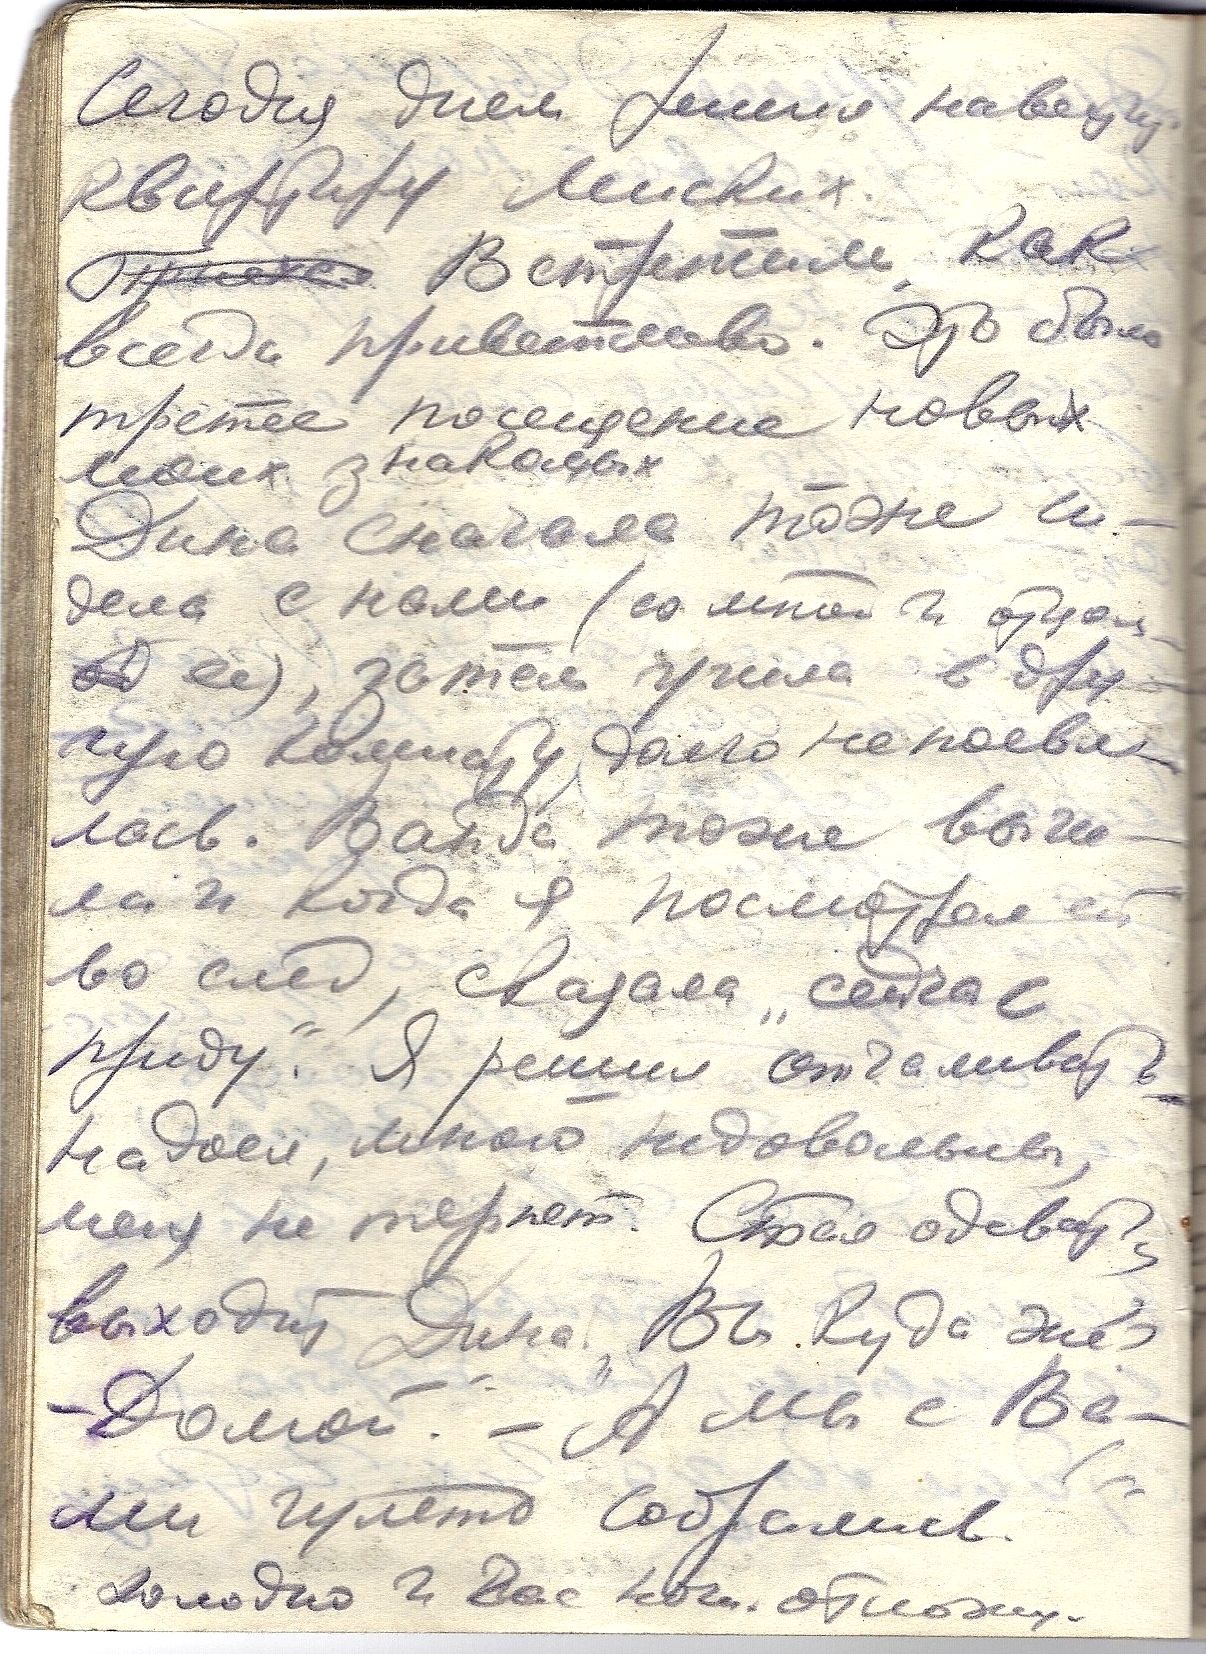 Сегодня днем решил навещу
квартиру Минских.
Встретили, как
всегда приветливо. Это было
третее посещение новых
моих знакомых
Дина сначала тоже си-
дела с нами (со мной и отцом
ее), затем ушла в дру-
гую комнату, долго не поевля-
лась. Ванда тоже вышла
и когда я посмотрел ей
во след, сказала „сейчас
приду“. Я решил отчаливать
надоел, мною недовольны,
меня не терпят. Стал одевать,
выходит Дина. „Вы куда же?
- Домой. - „А мы с Ва-
ми гулять собрались.
Холодно и Вас отложи.